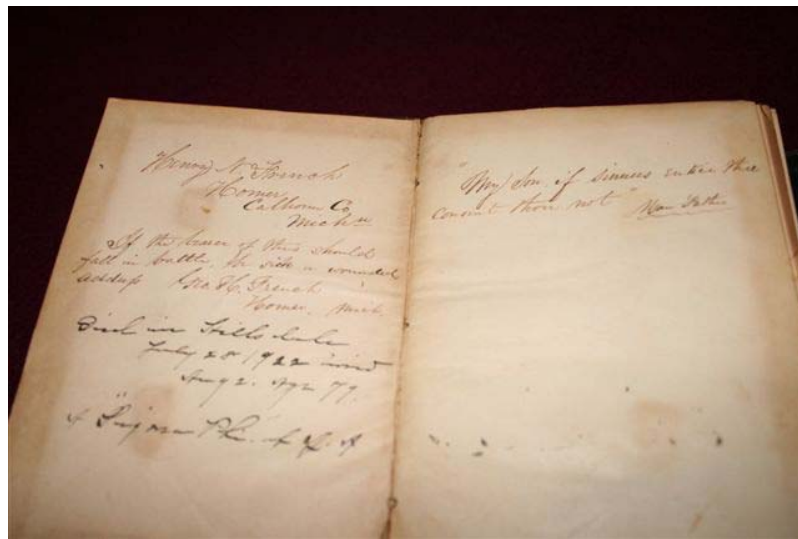 Henry N. French
Homer
Calhoun Co
Mich
If the bearer of this should
fall in battle, be sick or wounded
address Geo. H. French
Homer, Mich.
Died in Hillsdale
July 28 1922
Aug 2. Age 79
"My Son, if sinners entice thee
consent thou not" Your Father